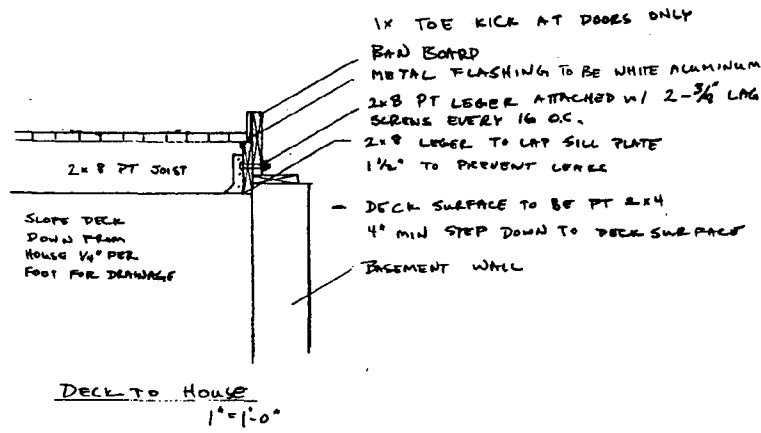 1x TOE KICK AT DOORS ONLY
BAN BOARD
METAL FLASHING TO BE WHITE ALUMINUM
2x8 PT LEGER ATTACHED W/ 2-3/8" LAG
SCREWS EVERY 16 O.C.
2x8 LEGER TO LAP SILL PLATE
1 1/2" TO PREVENT LEAKS
2x8 PT JOIST
- DECK SURFACE TO BE PT 2x4
4" MIN STEP DOWN TO DECK SURFACE
SLOPE DECK
DOWN FROM
HOUSE 1/4" PER
FOOT FOR DRAINAGE
BASEMENT WALL
DECK TO HOUSE
1"=1'-0"